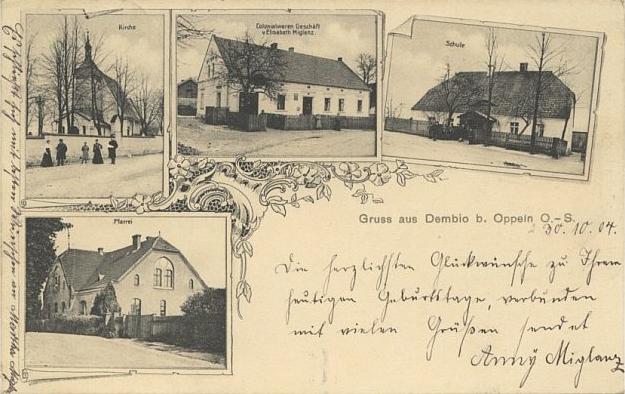 Kirche
Colonialwaren Geschäft
v. Elisabeth Miglanz.
Schule
Pfarrei
Gruss aus Dembio b. Oppeln O.-S.
30. 10. 04.
Die herzlichsten Glückwünsche zu Ihrem
heutigen Geburtstage, verbunden
mit vielen Grüßen sendet
Anny Miglanz